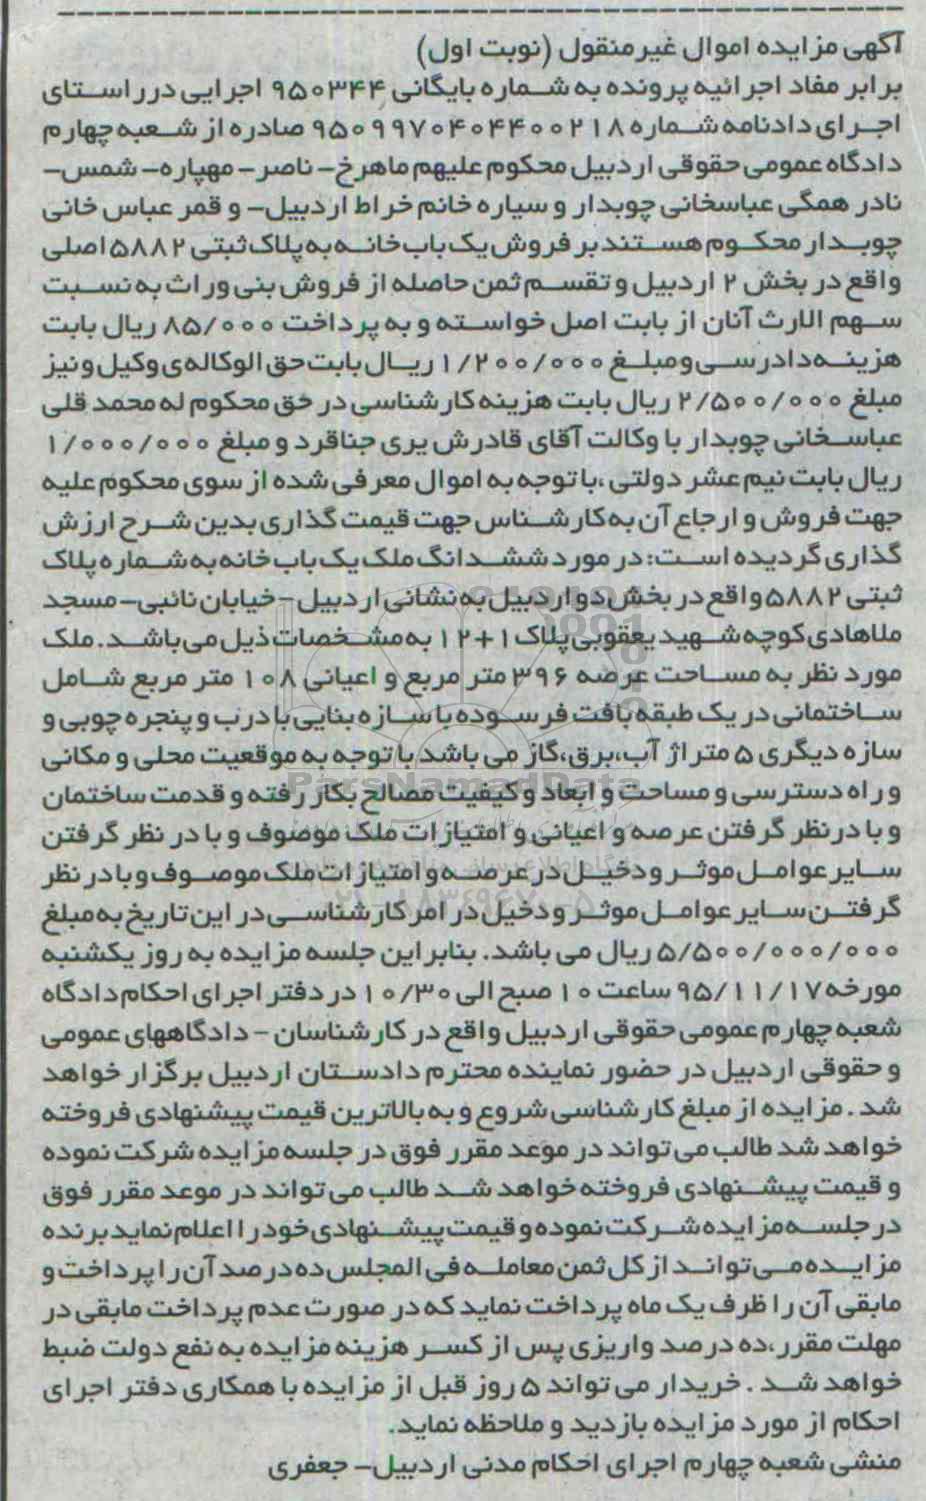 آگهی مزایده اموال غیرمنقول (نوبت اول)
برابر مفاد اجرائیه پرونده به شماره بایگانی ۹۵۰۳۴۴ اجرایی درراستای
اجرای دادنامه شماره ۹۵۰۹۹۷۰۴۰۴۴۰۰۲۱۸ صادره از شعبه چهارم
دادگاه عمومی حقوقی اردبیل محکوم علیهم ماهرخ- ناصر- مهپاره- شمس-
نادر همگی عباسخانی چوبدار و سیاره خانم خراط اردبیل- و قمر عباس خانی
چوبدار محکوم هستند بر فروش یک باب خانه به پلاک ثبتی ۵۸۸۲ اصلی
واقع در بخش ۲ اردبیل و تقسم ثمن حاصله از فروش بنی وراث به نسبت
سهم الارث آنان از بابت اصل خواسته و به پرداخت ۸۵/۰۰۰ ریال بابت
هزینه دادرسی و مبلغ ۱/۲۰۰/۰۰۰ ریال بابت حق الوکاله ی وکیل و نیز
مبلغ ۲/۵۰۰/۰۰۰ ریال بابت هزینه کارشناسی در حق محکوم له محمد قلی
عباسخانی چوبدار با وکالت آقای قادرش یری جناقرد و مبلغ ۱/۰۰۰/۰۰۰
ریال بابت نیم عشر دولتی ،با توجه به اموال معرفی شده از سوی محکوم علیه
جهت فروش و ارجاع آن به کارشناس جهت قیمت گذاری بدین شرح ارزش
گذاری گردیده است: در مورد ششدانگ ملک یک باب خانه به شماره پلاک
ثبتی ۵۸۸۲ واقع در بخش دو اردبیل به نشانی اردبیل - خیابان نائبی- مسجد
ملاهادی کوچه شهید یعقوبی پلاک ۱+۱۲ به مشخصات ذیل می باشد. ملک
مورد نظر به مساحت عرصه ۳۹۶ متر مربع و اعیانی ۱۰۸ متر مربع شامل
ساختمانی در یک طبقه بافت فرسوده با سازه بنایی با درب و پنجره چوبی و
سازه دیگری ۵ متر از آب،برق،گاز می باشد با توجه به موقعیت محلی و مکانی
و راه دسترسی و مساحت و ابعاد و کیفیت مصالح بکار رفته و قدمت ساختمان
و با درنظر گرفتن عرصه و اعیانی و امتیازات ملک موصوف و با در نظر گرفتن
سایر عوامل موثر و دخیل در عرصه و امتیازات ملک موصوف و با در نظر
گرفتن سایر عوامل موثر و دخیل در امر کارشناسی در این تاریخ به مبلغ
۵/۵۰۰/۰۰۰/۰۰۰ ریال می باشد. بنابراین جلسه مزایده به روز یکشنبه
مورخه ۹۵/۱۱/۱۷ ساعت ۱۰ صبح الی ۱۰/۳۰ در دفتر اجرای احکام دادگاه
شعبه چهارم عمومی حقوقی اردبیل واقع در کارشناسان - دادگاههای عمومی
و حقوقی اردبیل در حضور نماینده محترم دادستان اردبیل برگزار خواهد
شد . مزایده از مبلغ کارشناسی شروع و به بالاترین قیمت پیشنهادی فروخته
خواهد شد طالب می تواند در موعد مقرر فوق در جلسه مزایده شرکت نموده
و قیمت پیشنهادی فروخته خواهد شد طالب می تواند در موعد مقرر فوق
در جلسه مزایده شرکت نموده و قیمت پیشنهادی خود را اعلام نماید برنده
مزایده می تواند از کل ثمن معامله فی المجلس ده درصد آن را پرداخت و
مابقی آن را ظرف یک ماه پرداخت نماید که در صورت عدم پرداخت مابقی در
مهلت مقرر،ده درصد واریزی پس از کسر هزینه مزایده به نفع دولت ضبط
خواهد شد . خریدار می تواند ۵ روز قبل از مزایده با همکاری دفتر اجرای
احکام از مورد مزایده بازدید و ملاحظه نماید.
منشی شعبه چهارم اجرای احکام مدنی اردبیل- جعفری
ParsNamadData